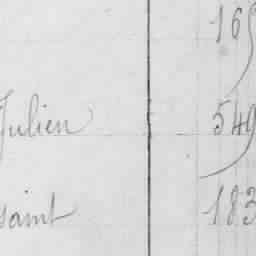 165
Julien 549
saint 183